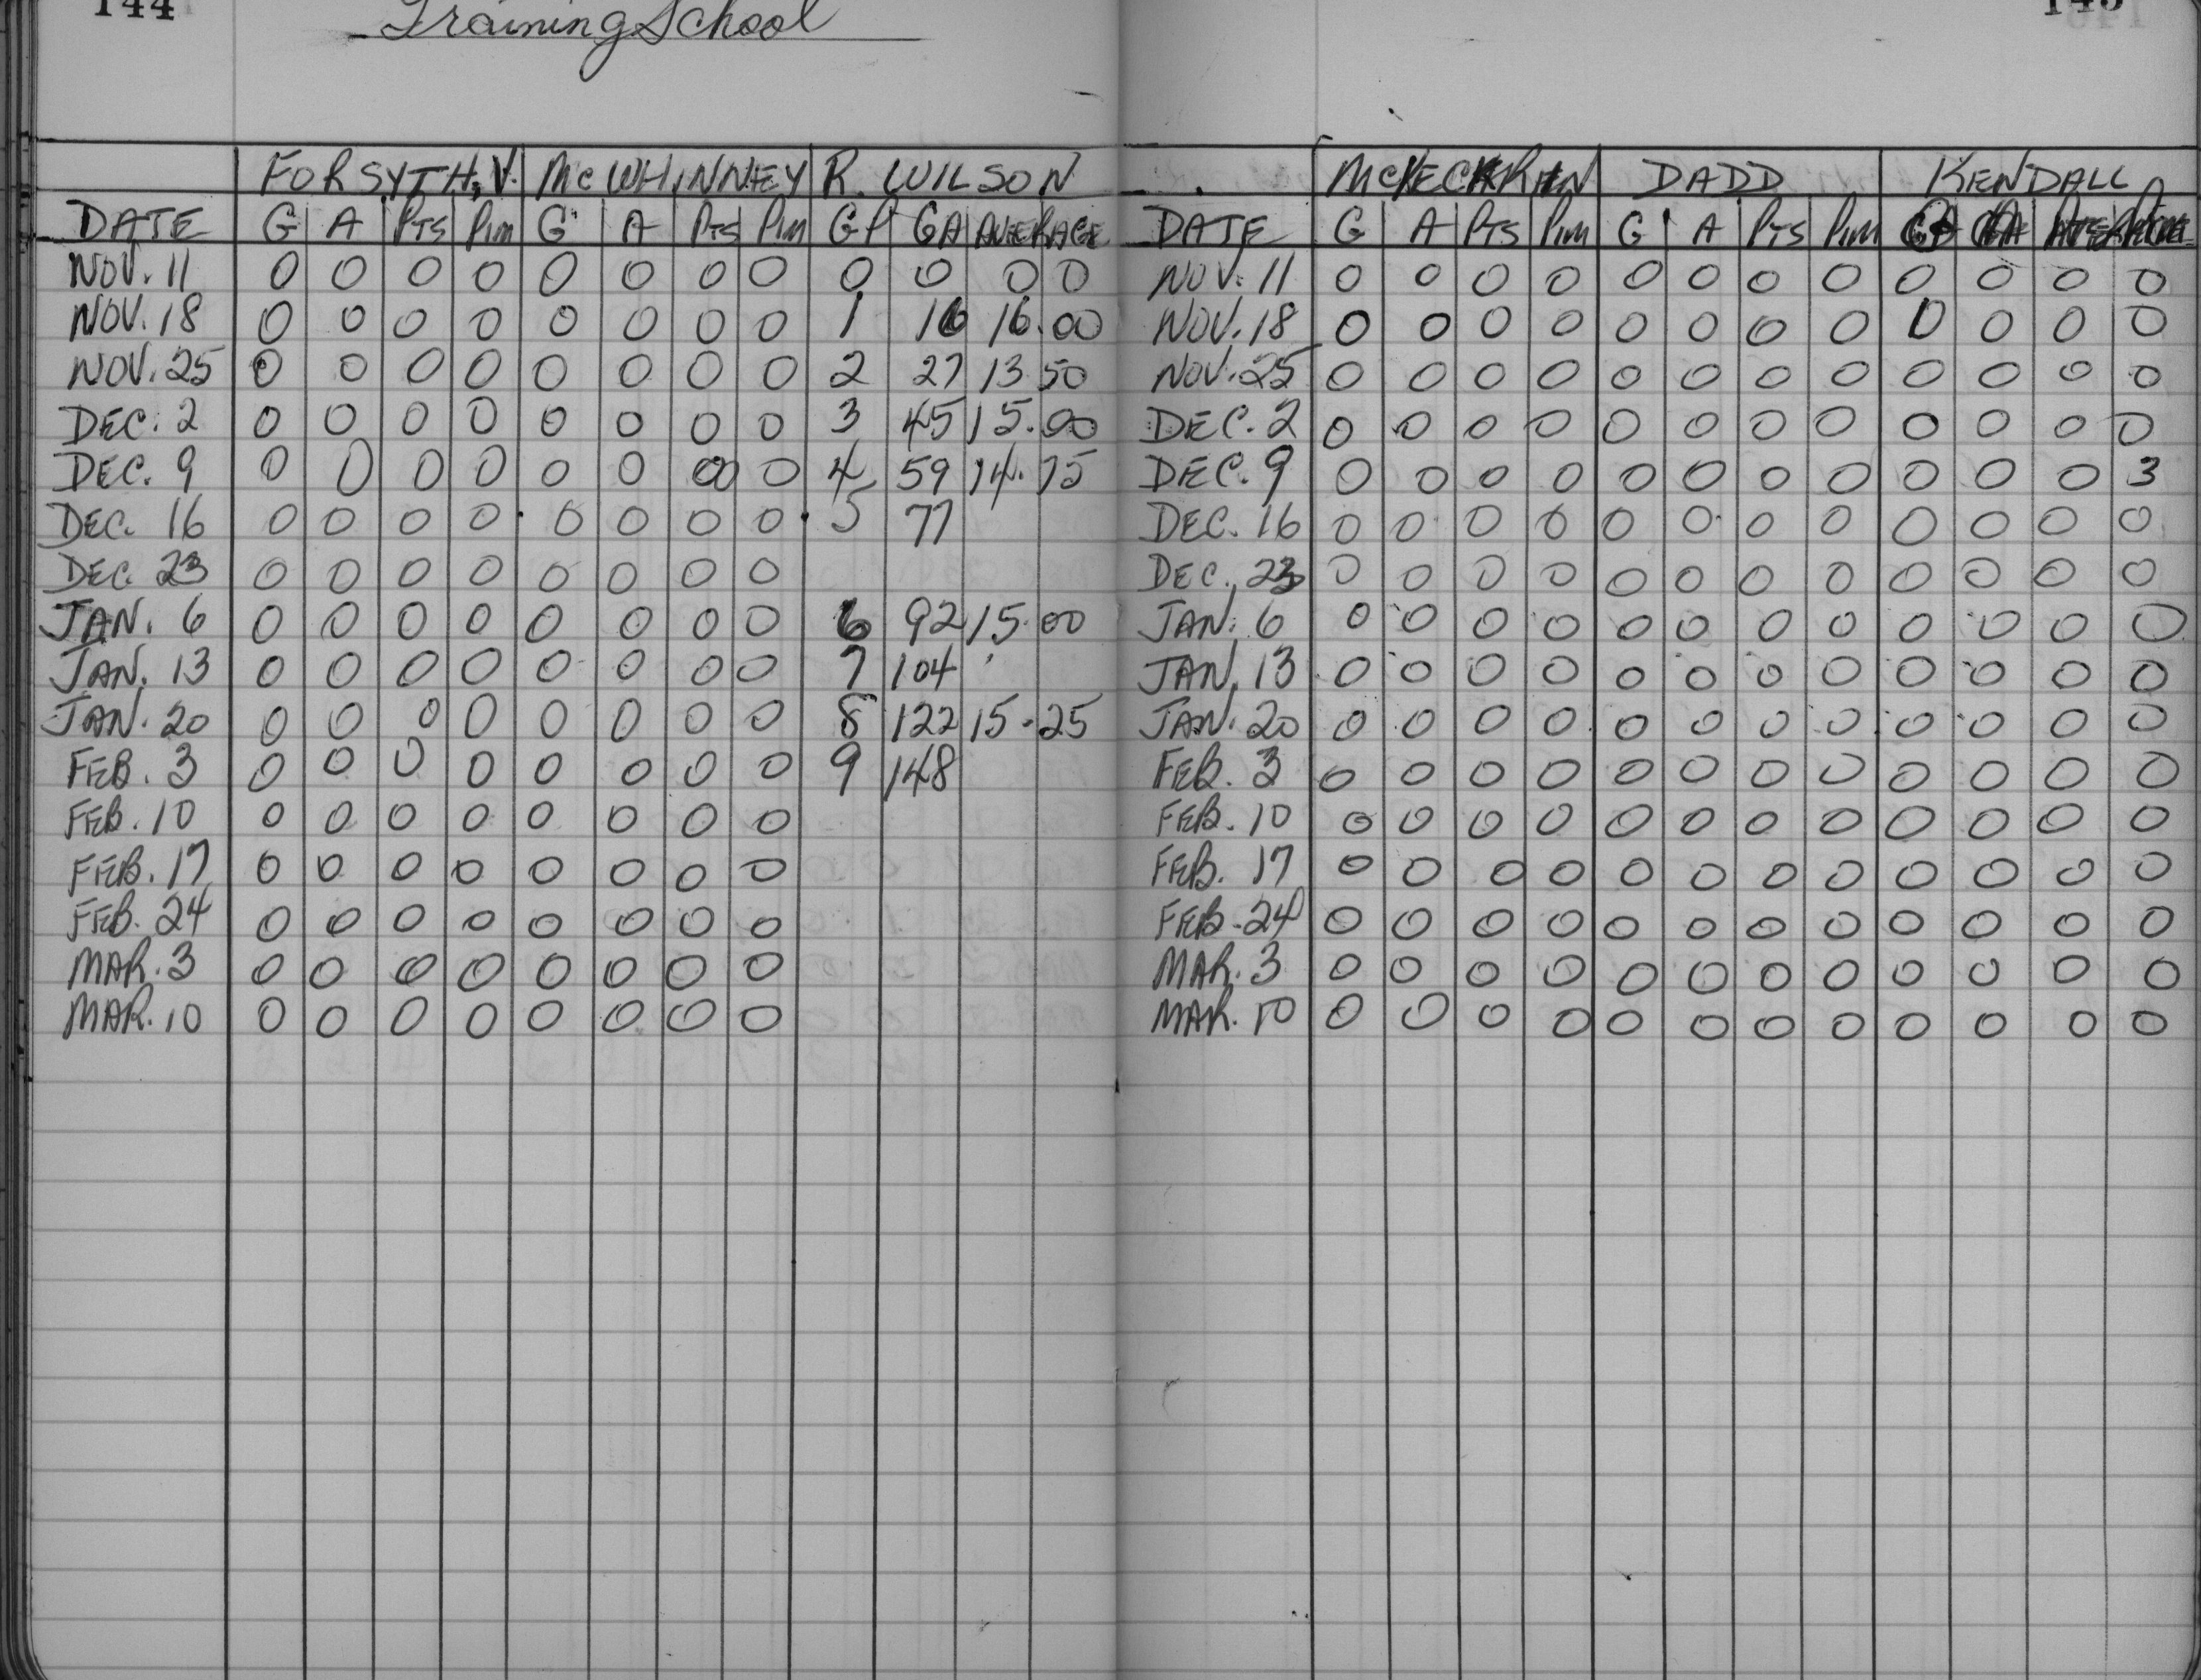 144
Training School
FORSYTH, V. McWHINNEY R. WILSON
DATE G A PTS PIM G A PTS PIM GP GA AVERAGE
NOV. 11 0 0 0 0 0 0 0 0 0 0 0 0
NOV. 18 0 0 0 0 0 0 0 0 1 16 16.00
NOV. 25 0 0 0 0 0 0 0 0 2 27 13 50
DEC. 2 0 0 0 0 0 0 0 0 3 45 15.00
DEC. 9 0 0 0 0 0 0 00 0 4 59 14.75
DEC. 16 0 0 0 0 0 0 0 0 5 77
DEC. 23 0 0 0 0 0 0 0 0
JAN. 6 0 0 0 0 0 0 0 0 6 92 15.00
JAN. 13 0 0 0 0 0 0 0 0 7 104
JAN. 20 0 0 0 0 0 0 0 0 8 122 15.25
FEB. 3 0 0 0 0 0 0 0 0 9 148
FEB. 10 0 0 0 0 0 0 0 0
FEB. 17 0 0 0 0 0 0 0 0
FEB. 24 0 0 0 0 0 0 0 0
MAR. 3 0 0 0 0 0 0 0 0
MAR. 10 0 0 0 0 0 0 0 0
145
DADD KENDALL
DATE G A PTS PIM G A PTS PIM
NOV. 11 0 0 0 0 0 0 0 0 0 0 0 0
NOV. 18 0 0 0 0 0 0 0 0 0 0 0 0
NOV. 25 0 0 0 0 0 0 0 0 0 0 0 0
DEC. 2 0 0 0 0 0 0 0 0 0 0 0 0
DEC. 9 0 0 0 0 0 0 0 0 0 0 0 3
DEC. 16 0 0 0 0 0 0 0 0 0 0 0 0
DEC. 23 0 0 0 0 0 0 0 0 0 0 0 0
JAN. 6 0 0 0 0 0 0 0 0 0 0 0 0
JAN. 13 0 0 0 0 0 0 0 0 0 0 0 0
JAN. 20 0 0 0 0 0 0 0 0 0 0 0 0
FEB. 3 0 0 0 0 0 0 0 0 0 0 0 0
FEB. 10 0 0 0 0 0 0 0 0 0 0 0 0
FEB. 17 0 0 0 0 0 0 0 0 0 0 0 0
FEB. 24 0 0 0 0 0 0 0 0 0 0 0 0
MAR. 3 0 0 0 0 0 0 0 0 0 0 0 0
MAR. 10 0 0 0 0 0 0 0 0 0 0 0 0